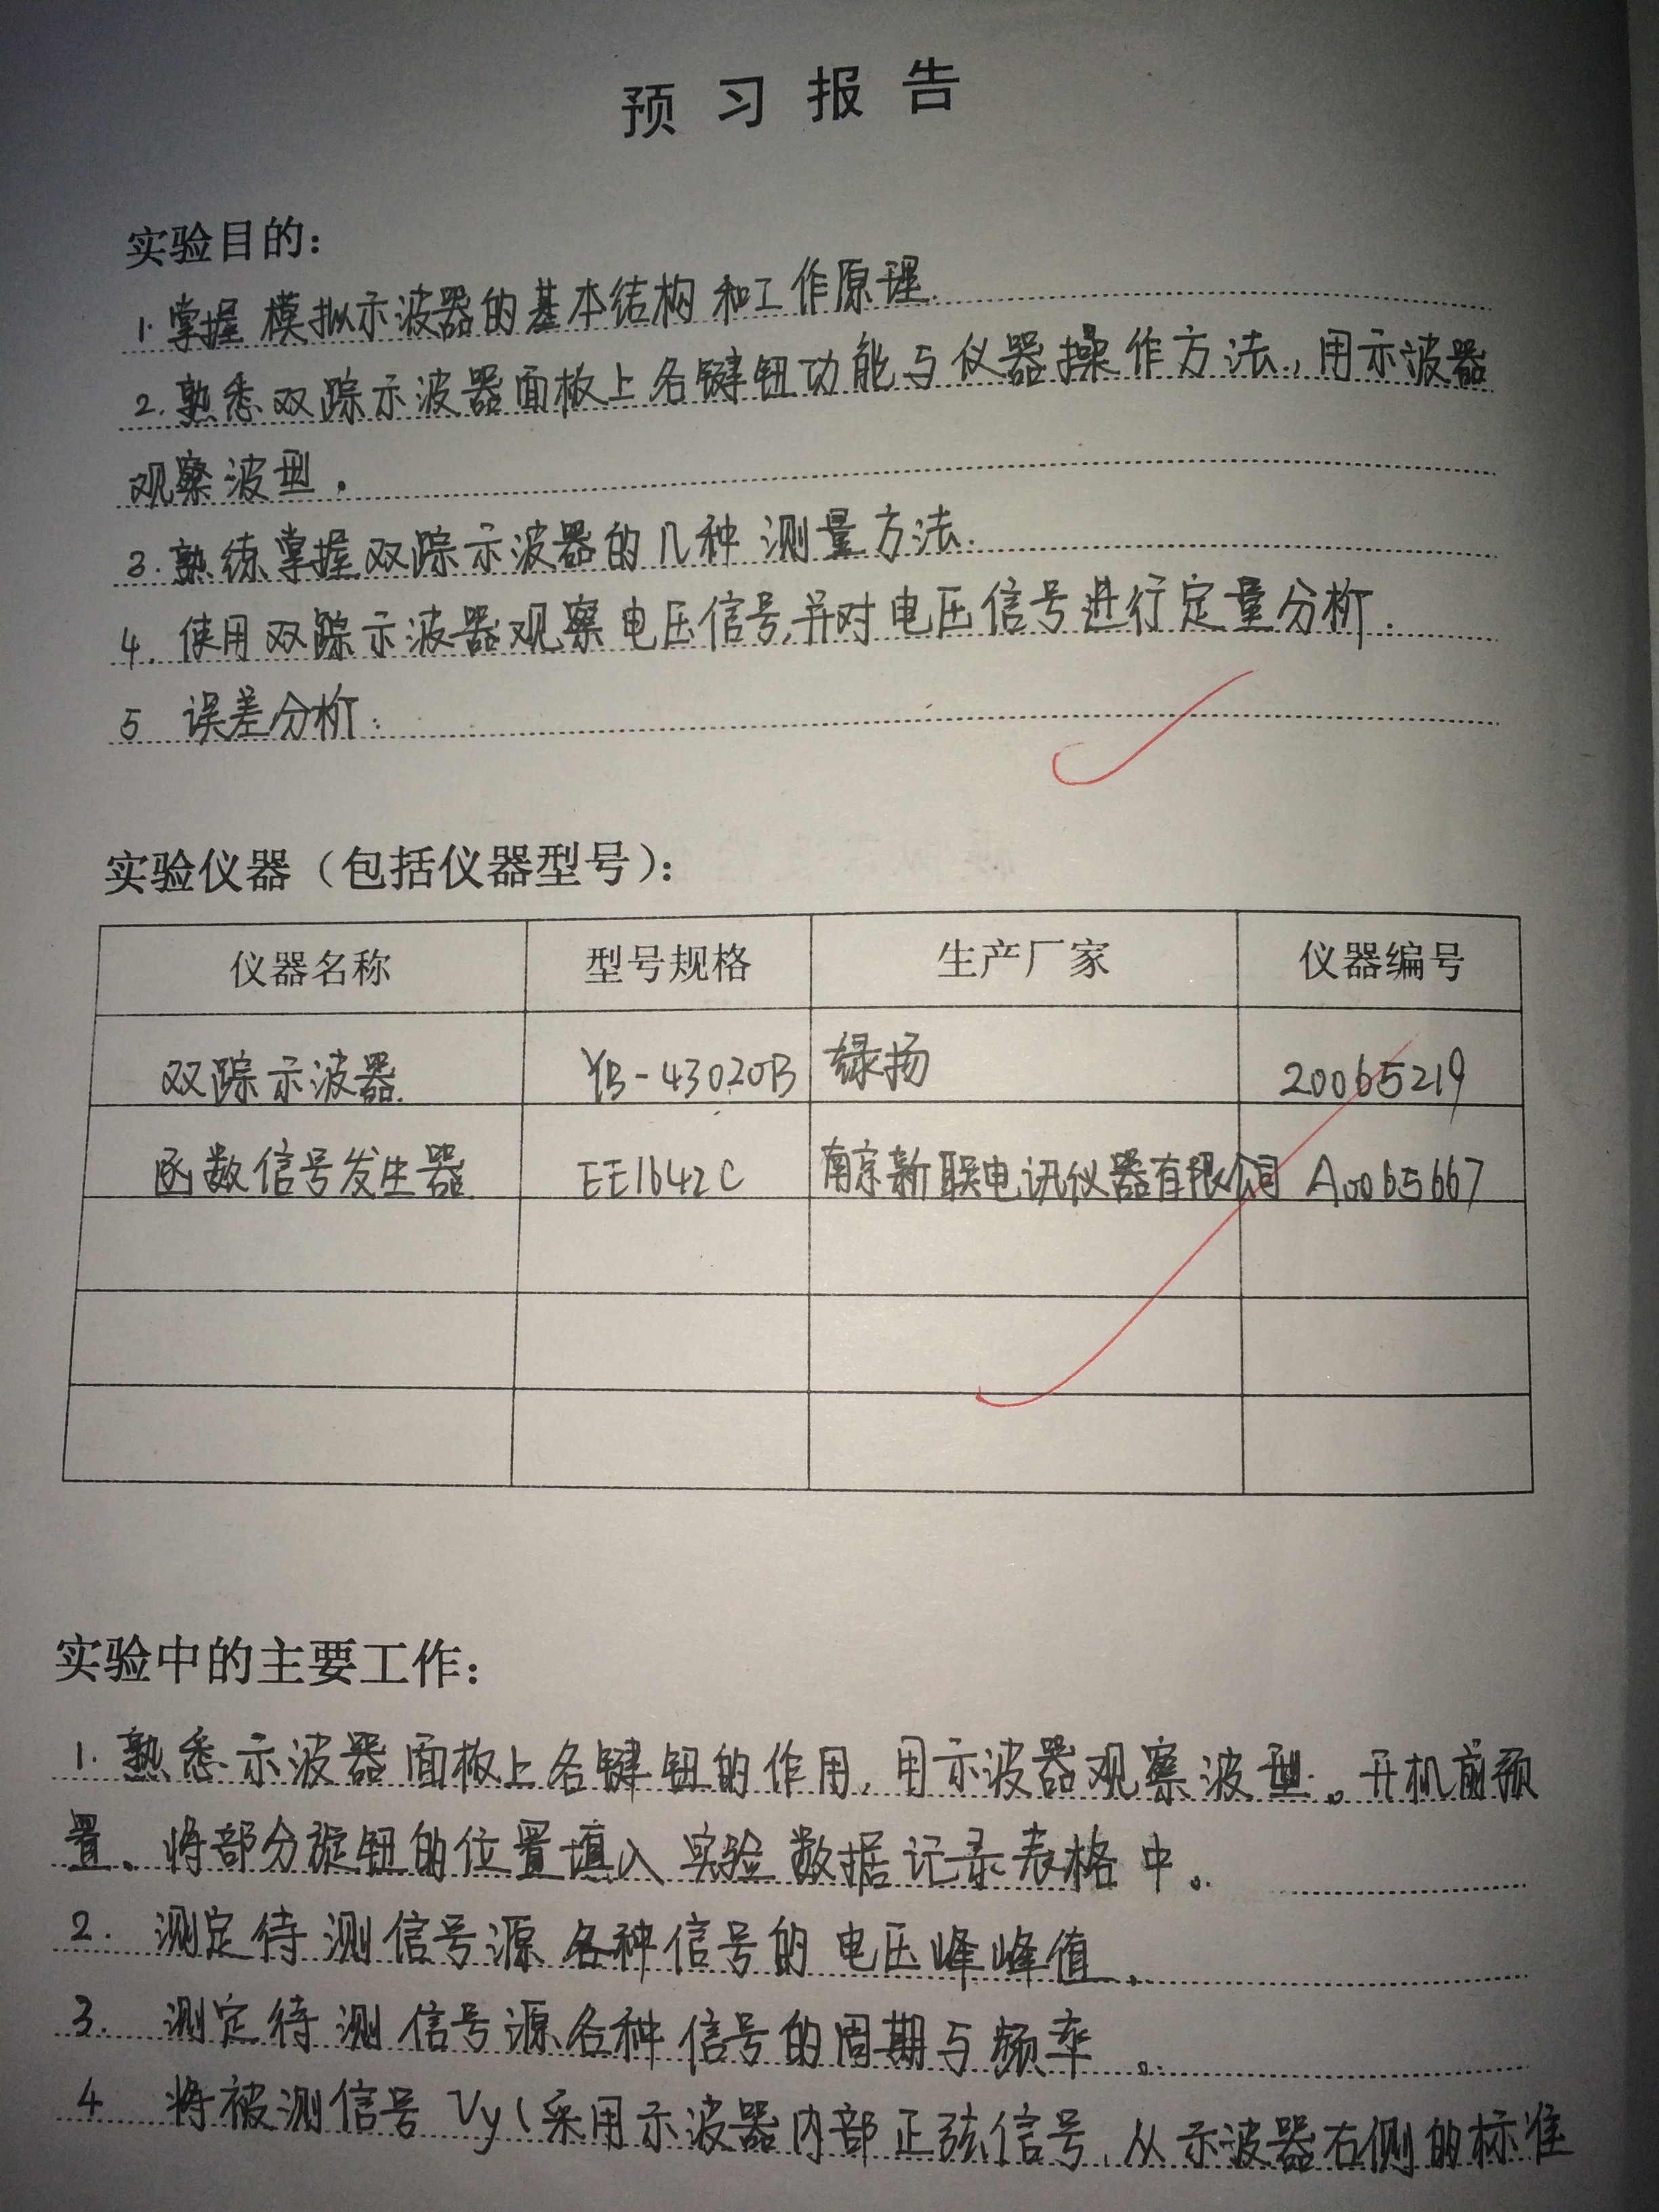 预习报告
实验目的：
1.掌握模拟示波器的基本结构和工作原理.
2.熟悉双踪示波器面板上各键钮功能与仪器操作方法，用示波器
观察波型.
3.熟练掌握双踪示波器的几种测量方法.
4.使用双踪示波器观察电压信号,并对电压信号进行定量分析.
5 误差分析.
实验仪器（包括仪器型号）：
仪器名称 型号规格 生产厂家 仪器编号
双踪示波器. YB-43020B 绿扬 20065219
函数信号发生器 EE1642C 南京新联电讯仪器有限公司 A0065667
实验中的主要工作：
1.熟悉示波器面板上各键钮的作用,用示波器观察波型。开机前预
置、将部分旋钮的位置填入实验数据记录表格中。
2. 测定待测信号源各种信号的电压峰峰值.
3. 测定待测信号源各种信号的周期与频率。
4 将被测信号Vy(采用示波器内部正弦信号,从示波器右侧的标准